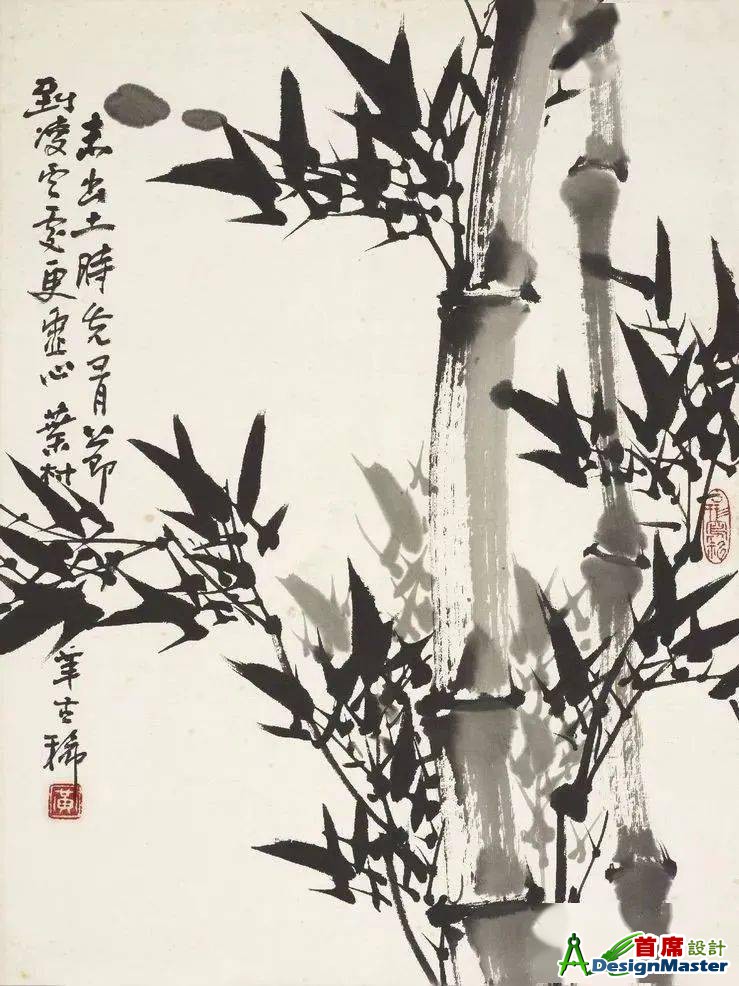 未出土時先有節
到凌雲處更虛心 葉村
年古稀
黃
首席設計
DesignMaster